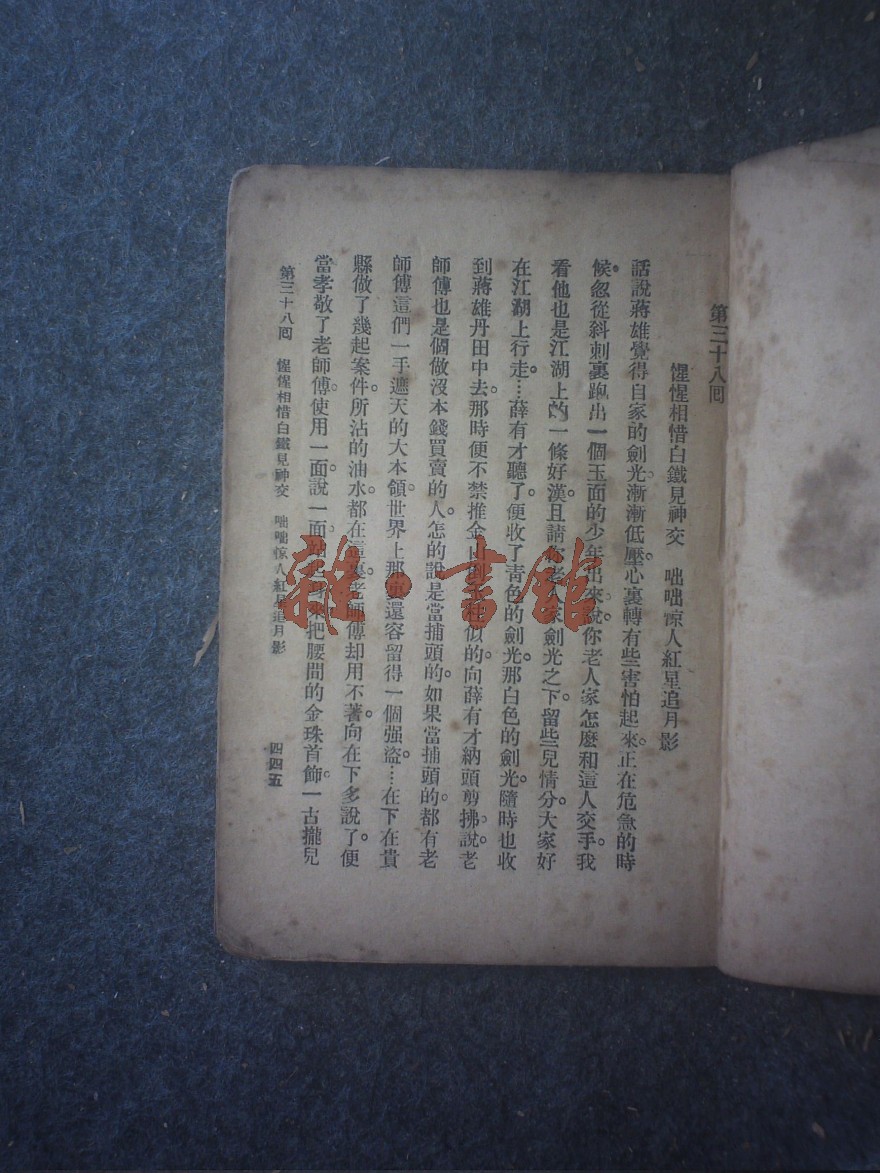 第三十八囘
惺惺相惜白鐵見神交　咄咄惊人紅星追月影
話說蔣雄覺得自家的劍光漸漸低壓。心裏轉有些害怕起來。正在危急的時
候。忽從斜刺裏跑出一個玉面的少年出來。說你老人家怎麽和這人交手。我
看他也是江湖上的一條好漢。且請你老人家劍光之下。留些兒情分。大家好
在江湖上行走…薛有才聽了。便收了靑色的劍光。那白色的劍光。隨時也收
到蔣雄丹田中去。那時便不禁推金山倒玉柱似的。向薛有才納頭剪拂。說。老
師傅也是個做沒本錢買賣的人。怎的說是當捕頭的。如果當捕頭的。都有老
師傅這們一手遮天的大本領。世界上那裏還容留得一個强盜…在下在貴
縣做了幾起案件。所沾的油水。都在這裏。老師傅却用不著。向在下多說了。便
當孝敬了老師傅使用。一面說。一面 把腰間的金珠首飾。一古攏兒
第三十八囘　惺惺相惜白鐵見神交　咄咄惊人紅星追月影
四四五
雜·書館